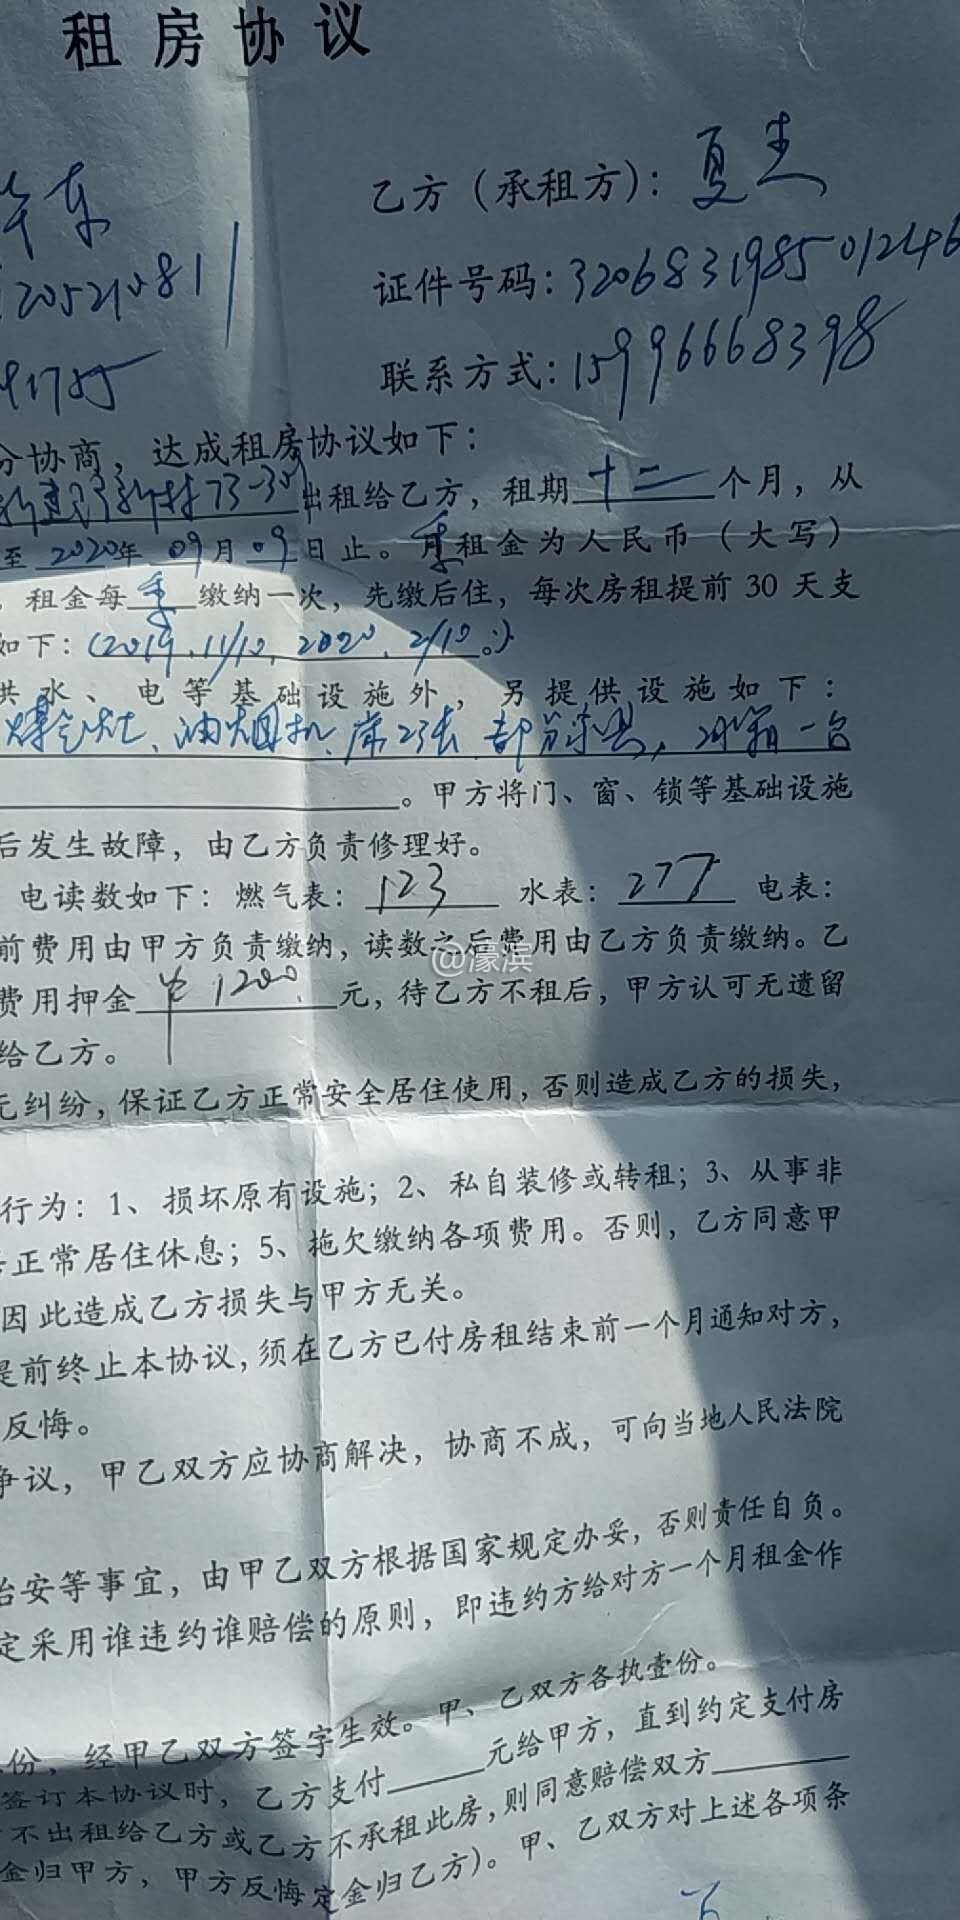 租房协议
东 乙方（承租方）：夏
205210811 证件号码：320683198501246
91755 联系方式：15996668398
协商，达成租房协议如下：
新村73-30 出租给乙方，租期十二个月，从
至2020年09月09日止。季租金为人民币（大写）
租金每季缴纳一次，先缴后住，每次房租提前30天支
如下：（2019、11/10、2020、2/10。）
供水、电等基础设施外，另提供设施如下：
煤气灶、油烟机、床2张 部分家具，冰箱一台
。甲方将门、窗、锁等基础设施
后发生故障，由乙方负责修理好。
电读数如下：燃气表：123 水表：277 电表：
前费用由甲方负责缴纳，读数之后费用由乙方负责缴纳。乙
@濠滨
费用押金¥1200元，待乙方不租后，甲方认可无遗留
给乙方。
无纠纷，保证乙方正常安全居住使用，否则造成乙方的损失，
行为：1、损坏原有设施；2、私自装修或转租；3、从事非
正常居住休息；5、拖欠缴纳各项费用。否则，乙方同意甲
因此造成乙方损失与甲方无关。
提前终止本协议，须在乙方已付房租结束前一个月通知对方，
反悔。
争议，甲乙双方应协商解决，协商不成，可向当地人民法院
治安等事宜，由甲乙双方根据国家规定办妥，否则责任自负。
定采用谁违约谁赔偿的原则，即违约方给对方一个月租金作
份，经甲乙双方签字生效。甲、乙双方各执壹份。
签订本协议时，乙方支付元给甲方，直到约定支付房
不出租给乙方或乙方不承租此房，则同意赔偿双方
金归甲方，甲方反悔定金归乙方）。甲、乙双方对上述各项条